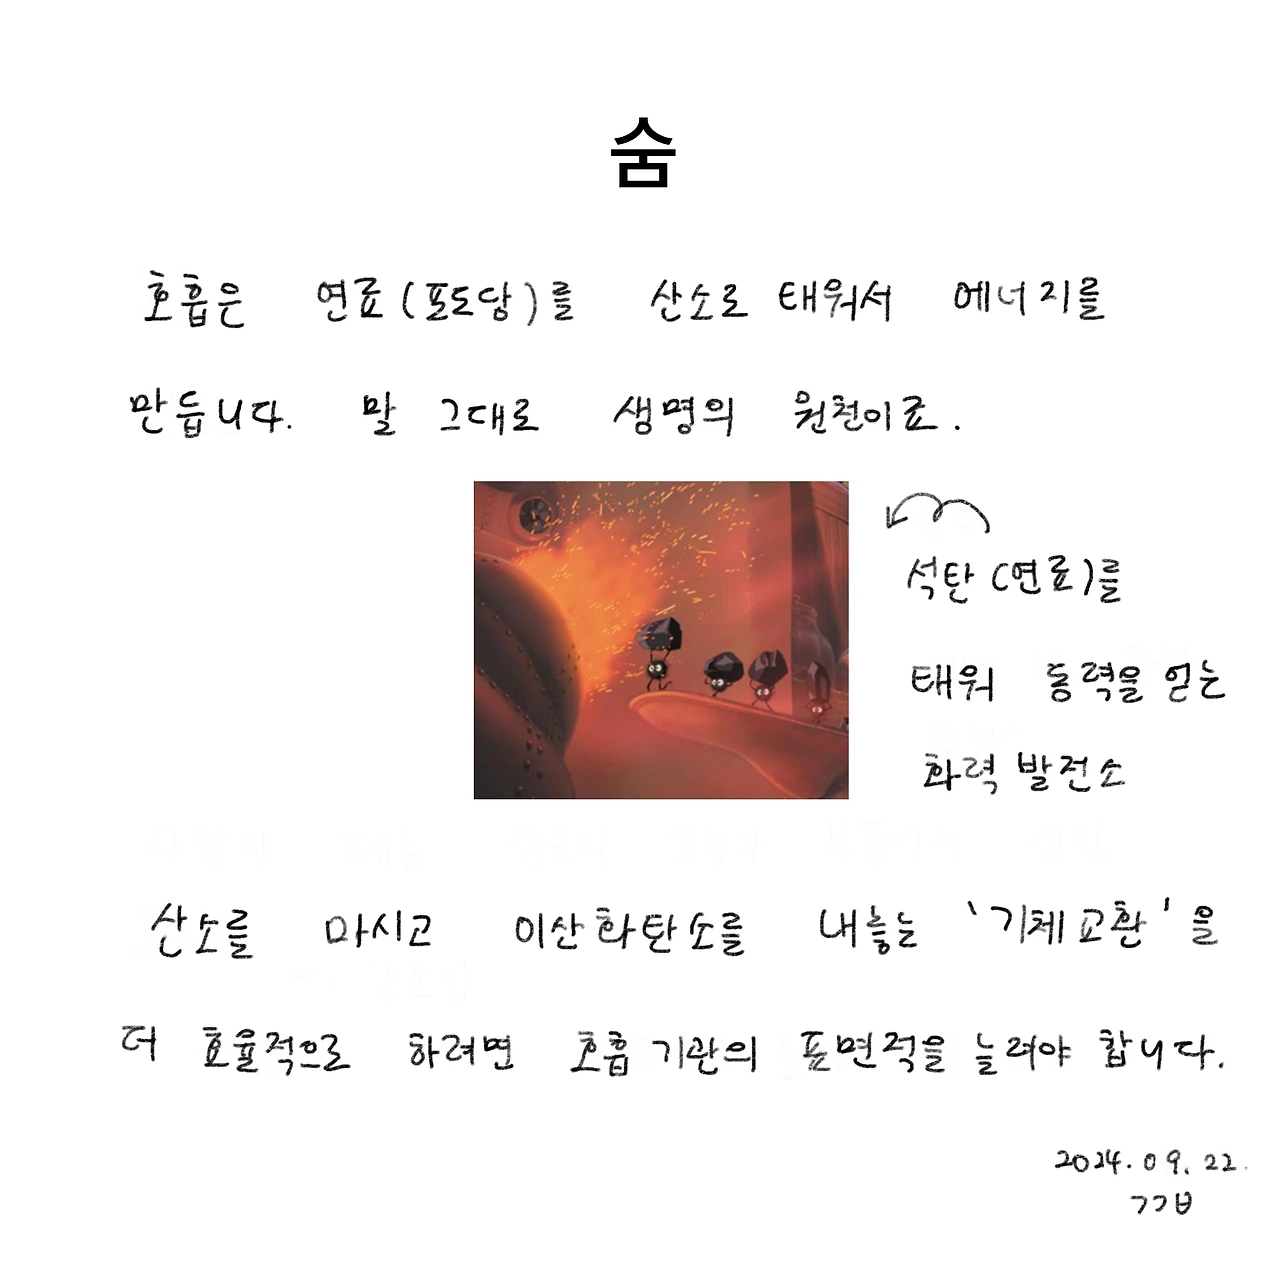 숨
호흡은 연료(포도당)를 산소로 태워서 에너지를
만듭니다. 말 그대로 생명의 원천이죠.
석탄(연료)를
태워 동력을 얻는
화력 발전소
산소를 마시고 이산화탄소를 내놓는 '기체교환'을
더 효율적으로 하려면 호흡기관의 표면적을 늘려야 합니다.
2024.09.22.
ㄱㄱㅂ